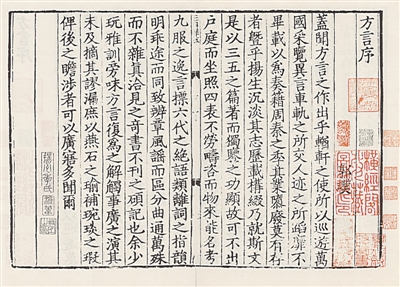 方言序 郭璞
蓋聞方言之作出乎輶軒之使所以巡遊萬
國采覽異言車軌之所交人迹之所蹈靡不
畢載以爲奏籍周秦之季其業隳廢莫有存
者曁乎揚生沉淡其志歷載構綴乃就斯文
是以三五之篇著而獨鑒之功顯故可不出
戶庭而坐照四表不勞疇咨而物來能名考
九服之逸言摽六代之絶語類離詞之指韻
明乖途而同致辨章風謠而區分曲通萬殊
而不雜真洽見之奇書不刊之碩記也余少
玩雅訓旁味方言復爲之解觸事廣之演其
未及摘其謬漏庶以燕石之瑜補琬琰之瑕
俾後之瞻涉者可以廣寤多聞爾